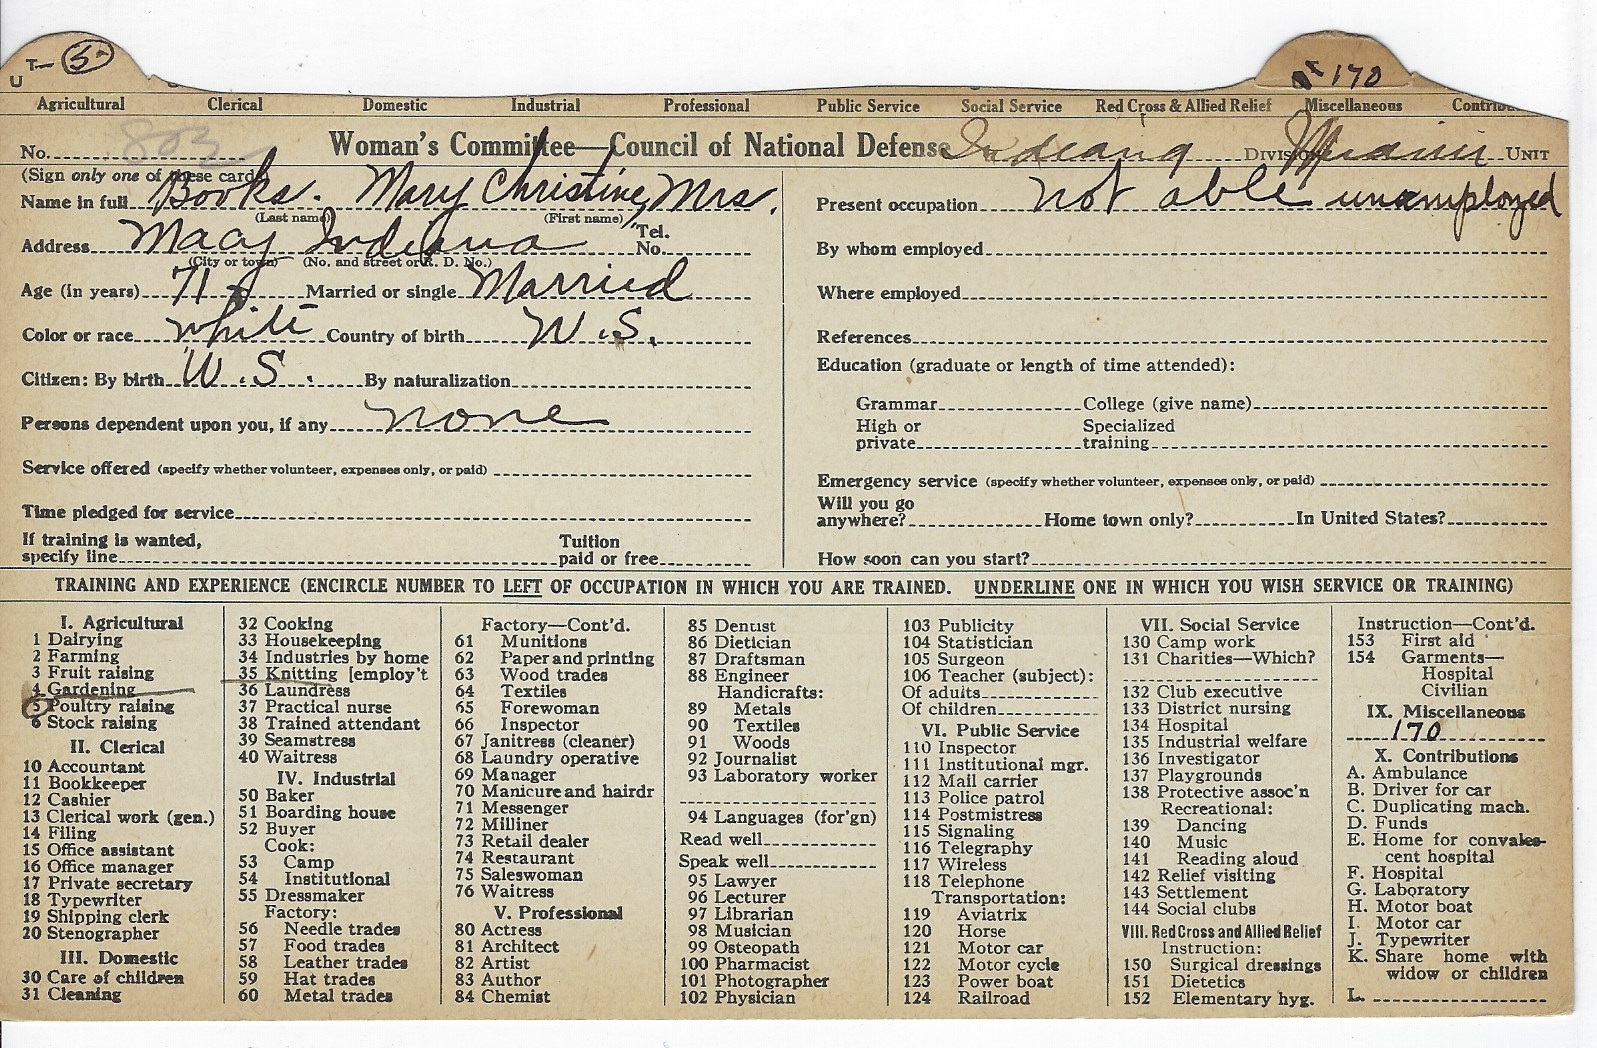 U T— 5-
170
Agricultural Clerical Domestic Industrial Professional Public Service Social Service Red Cross & Allied Relief Miscellaneous
No. 803
Woman's Committee—Council of National Defense Indiana DIVISION Miami UNIT
(Sign only one of these cards)
Name in full Books. Mary Christine, Mrs.
(Last name) (First name)
Address Macy Indiana Tel. No.
(City or town) (No. and street or R. D. No.)
Age (in years) 71 Married or single Married
Color or race white Country of birth U.S.
Citizen: By birth U.S. By naturalization
Persons dependent upon you, if any none
Service offered (specify whether volunteer, expenses only, or paid)
Time pledged for service
If training is wanted,
specify line Tuition paid or free
Present occupation not able unemployed
By whom employed
Where employed
References
Education (graduate or length of time attended):
Grammar College (give name)
High or private Specialized training
Emergency service (specify whether volunteer, expenses only, or paid)
Will you go anywhere? Home town only? In United States?
How soon can you start?
TRAINING AND EXPERIENCE (ENCIRCLE NUMBER TO LEFT OF OCCUPATION IN WHICH YOU ARE TRAINED. UNDERLINE ONE IN WHICH YOU WISH SERVICE OR TRAINING)
I. Agricultural
1 Dairying
2 Farming
3 Fruit raising
4 Gardening
5 Poultry raising
6 Stock raising
II. Clerical
10 Accountant
11 Bookkeeper
12 Cashier
13 Clerical work (gen.)
14 Filing
15 Office assistant
16 Office manager
17 Private secretary
18 Typewriter
19 Shipping clerk
20 Stenographer
III. Domestic
30 Care of children
31 Cleaning
32 Cooking
33 Housekeeping
34 Industries by home
35 Knitting [employ't
36 Laundress
37 Practical nurse
38 Trained attendant
39 Seamstress
40 Waitress
IV. Industrial
50 Baker
51 Boarding house
52 Buyer
Cook:
53 Camp
54 Institutional
55 Dressmaker
Factory:
56 Needle trades
57 Food trades
58 Leather trades
59 Hat trades
60 Metal trades
Factory—Cont'd.
61 Munitions
62 Paper and printing
63 Wood trades
64 Textiles
65 Forewoman
66 Inspector
67 Janitress (cleaner)
68 Laundry operative
69 Manager
70 Manicure and hairdr
71 Messenger
72 Milliner
73 Retail dealer
74 Restaurant
75 Saleswoman
76 Waitress
V. Professional
80 Actress
81 Architect
82 Artist
83 Author
84 Chemist
85 Dentist
86 Dietician
87 Draftsman
88 Engineer
Handicrafts:
89 Metals
90 Textiles
91 Woods
92 Journalist
93 Laboratory worker
94 Languages (for'gn)
Read well
Speak well
95 Lawyer
96 Lecturer
97 Librarian
98 Musician
99 Osteopath
100 Pharmacist
101 Photographer
102 Physician
103 Publicity
104 Statistician
105 Surgeon
106 Teacher (subject):
Of adults
Of children
VI. Public Service
110 Inspector
111 Institutional mgr.
112 Mail carrier
113 Police patrol
114 Postmistress
115 Signaling
116 Telegraphy
117 Wireless
118 Telephone
Transportation:
119 Aviatrix
120 Horse
121 Motor car
122 Motor cycle
123 Power boat
124 Railroad
VII. Social Service
130 Camp work
131 Charities—Which?
132 Club executive
133 District nursing
134 Hospital
135 Industrial welfare
136 Investigator
137 Playgrounds
138 Protective assoc'n
Recreational:
139 Dancing
140 Music
141 Reading aloud
142 Relief visiting
143 Settlement
144 Social clubs
VIII. Red Cross and Allied Relief
Instruction:
150 Surgical dressings
151 Dietetics
152 Elementary hyg.
Instruction—Cont'd.
153 First aid
154 Garments—
Hospital
Civilian
IX. Miscellaneous
170
X. Contributions
A. Ambulance
B. Driver for car
C. Duplicating mach.
D. Funds
E. Home for convales-
cent hospital
F. Hospital
G. Laboratory
H. Motor boat
I. Motor car
J. Typewriter
K. Share home with
widow or children
L.